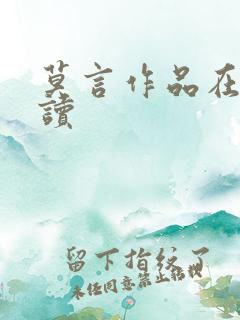 莫言作品在
讀
留下指纹了
未任同意禁止转载